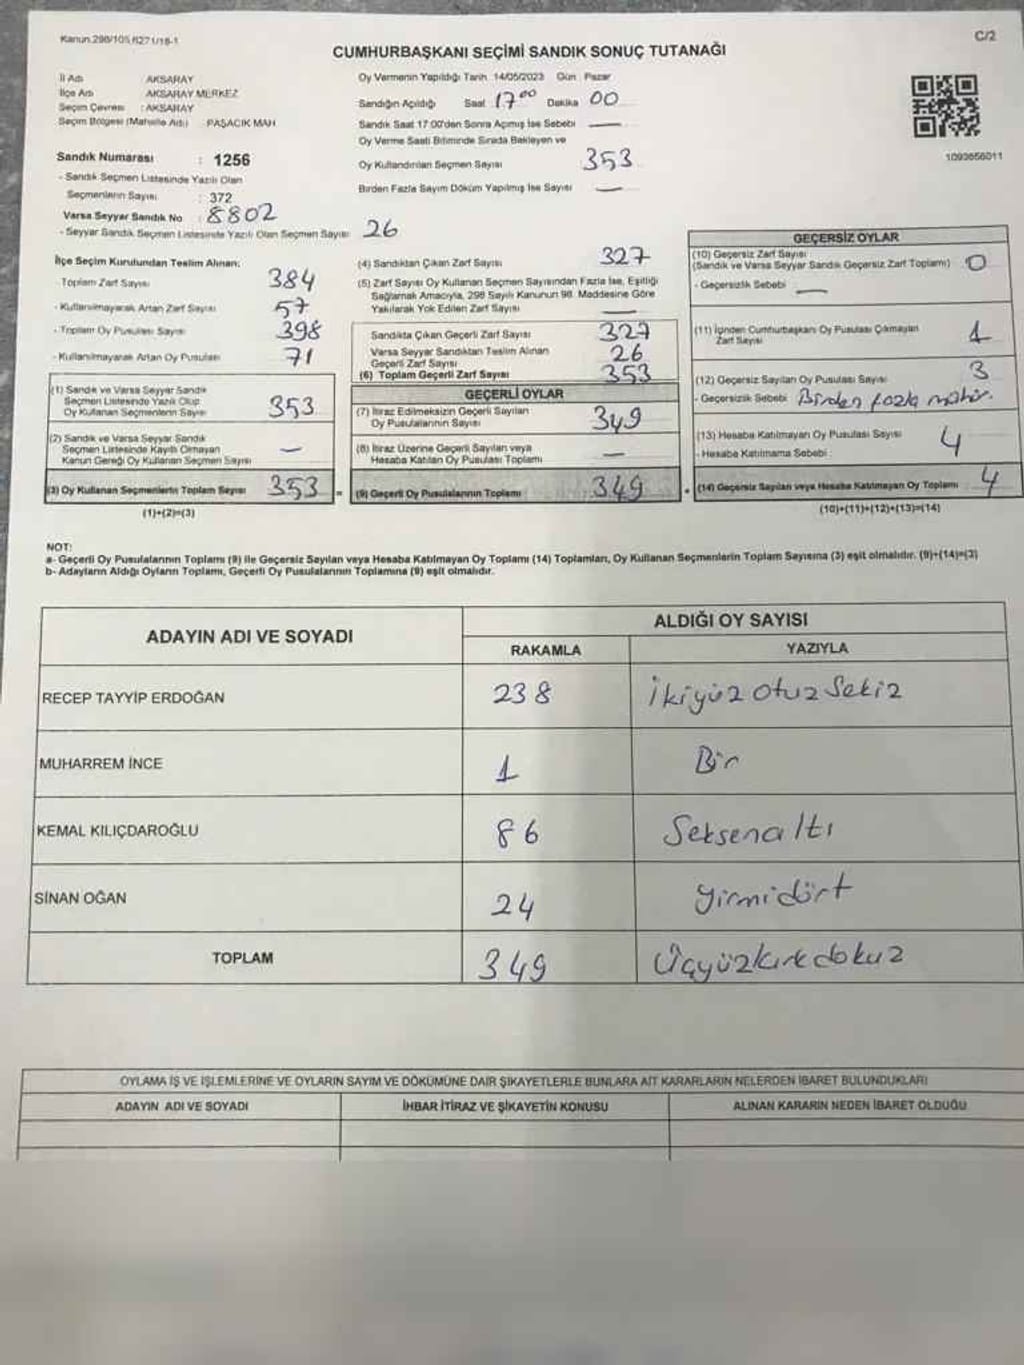 Kanun.298/105,6271/18-1
C/2
CUMHURBAŞKANI SEÇİMİ SANDIK SONUÇ TUTANAĞI
İl Adı AKSARAY
İlçe Adı AKSARAY MERKEZ
Seçim Çevresi : AKSARAY
Seçim Bölgesi (Mahalle Adı) : PAŞACIK MAH
Sandık Numarası : 1256
- Sandık Seçmen Listesinde Yazılı Olan
Seçmenlerin Sayısı : 372
Varsa Seyyar Sandık No : 8802
- Seyyar Sandık Seçmen Listesinde Yazılı Olan Seçmen Sayısı 26
Oy Vermenin Yapıldığı Tarih 14/05/2023 Gün Pazar
Sandığın Açıldığı Saat 17 00 Dakika 00
Sandık Saat 17:00'den Sonra Açmış İse Sebebi —
Oy Verme Saati Bitiminde Sırada Bekleyen ve
Oy Kullandırılan Seçmen Sayısı 353
Birden Fazla Sayım Döküm Yapılmış İse Sayısı —
1093656011
İlçe Seçim Kurulundan Teslim Alınan:
- Toplam Zarf Sayısı 384
- Kullanılmayarak Artan Zarf Sayısı 57
- Toplam Oy Pusulası Sayısı 398
- Kullanılmayarak Artan Oy Pusulası 71
(1) Sandık ve Varsa Seyyar Sandık
Seçmen Listesinde Yazılı Olup
Oy Kullanan Seçmenlerin Sayısı 353
(2) Sandık ve Varsa Seyyar Sandık
Seçmen Listesinde Kayıtlı Olmayan
Kanun Gereği Oy Kullanan Seçmen Sayısı —
(3) Oy Kullanan Seçmenlerin Toplam Sayısı 353
(1)+(2)=(3)
(4) Sandıktan Çıkan Zarf Sayısı 327
(5) Zarf Sayısı Oy Kullanan Seçmen Sayısından Fazla İse, Eşitliği
Sağlamak Amacıyla, 298 Sayılı Kanunun 98. Maddesine Göre
Yakılarak Yok Edilen Zarf Sayısı —
Sandıkta Çıkan Geçerli Zarf Sayısı 327
Varsa Seyyar Sandıktan Teslim Alınan
Geçerli Zarf Sayısı 26
(6) Toplam Geçerli Zarf Sayısı 353
GEÇERLİ OYLAR
(7) İtiraz Edilmeksizin Geçerli Sayılan
Oy Pusulalarının Sayısı 349
(8) İtiraz Üzerine Geçerli Sayılan veya
Hesaba Katılan Oy Pusulası Toplamı —
= (9) Geçerli Oy Pusulalarının Toplamı 349
GEÇERSİZ OYLAR
(10) Geçersiz Zarf Sayısı
(Sandık ve Varsa Seyyar Sandık Geçersiz Zarf Toplamı) 0
- Geçersizlik Sebebi —
(11) İçinden Cumhurbaşkanı Oy Pusulası Çıkmayan
Zarf Sayısı 1
(12) Geçersiz Sayılan Oy Pusulası Sayısı 3
- Geçersizlik Sebebi Birden fazla mühür.
(13) Hesaba Katılmayan Oy Pusulası Sayısı 4
- Hesaba Katılmama Sebebi :
+ (14) Geçersiz Sayılan veya Hesaba Katılmayan Oy Toplamı 4
(10)+(11)+(12)+(13)=(14)
NOT:
a- Geçerli Oy Pusulalarının Toplamı (9) ile Geçersiz Sayılan veya Hesaba Katılmayan Oy Toplamı (14) Toplamları, Oy Kullanan Seçmenlerin Toplam Sayısına (3) eşit olmalıdır. (9)+(14)=(3)
b- Adayların Aldığı Oyların Toplamı, Geçerli Oy Pusulalarının Toplamına (9) eşit olmalıdır.
ADAYIN ADI VE SOYADI ALDIĞI OY SAYISI
RAKAMLA YAZIYLA
RECEP TAYYİP ERDOĞAN 238 İkiyüz otuz Sekiz
MUHARREM İNCE 1 Bir
KEMAL KILIÇDAROĞLU 86 Seksenaltı
SİNAN OĞAN 24 yirmidört
TOPLAM 349 Üçyüzkırkdokuz
OYLAMA İŞ VE İŞLEMLERİNE VE OYLARIN SAYIM VE DÖKÜMÜNE DAİR ŞİKAYETLERLE BUNLARA AİT KARARLARIN NELERDEN İBARET BULUNDUKLARI
ADAYIN ADI VE SOYADI İHBAR İTİRAZ VE ŞİKAYETİN KONUSU ALINAN KARARIN NEDEN İBARET OLDUĞU